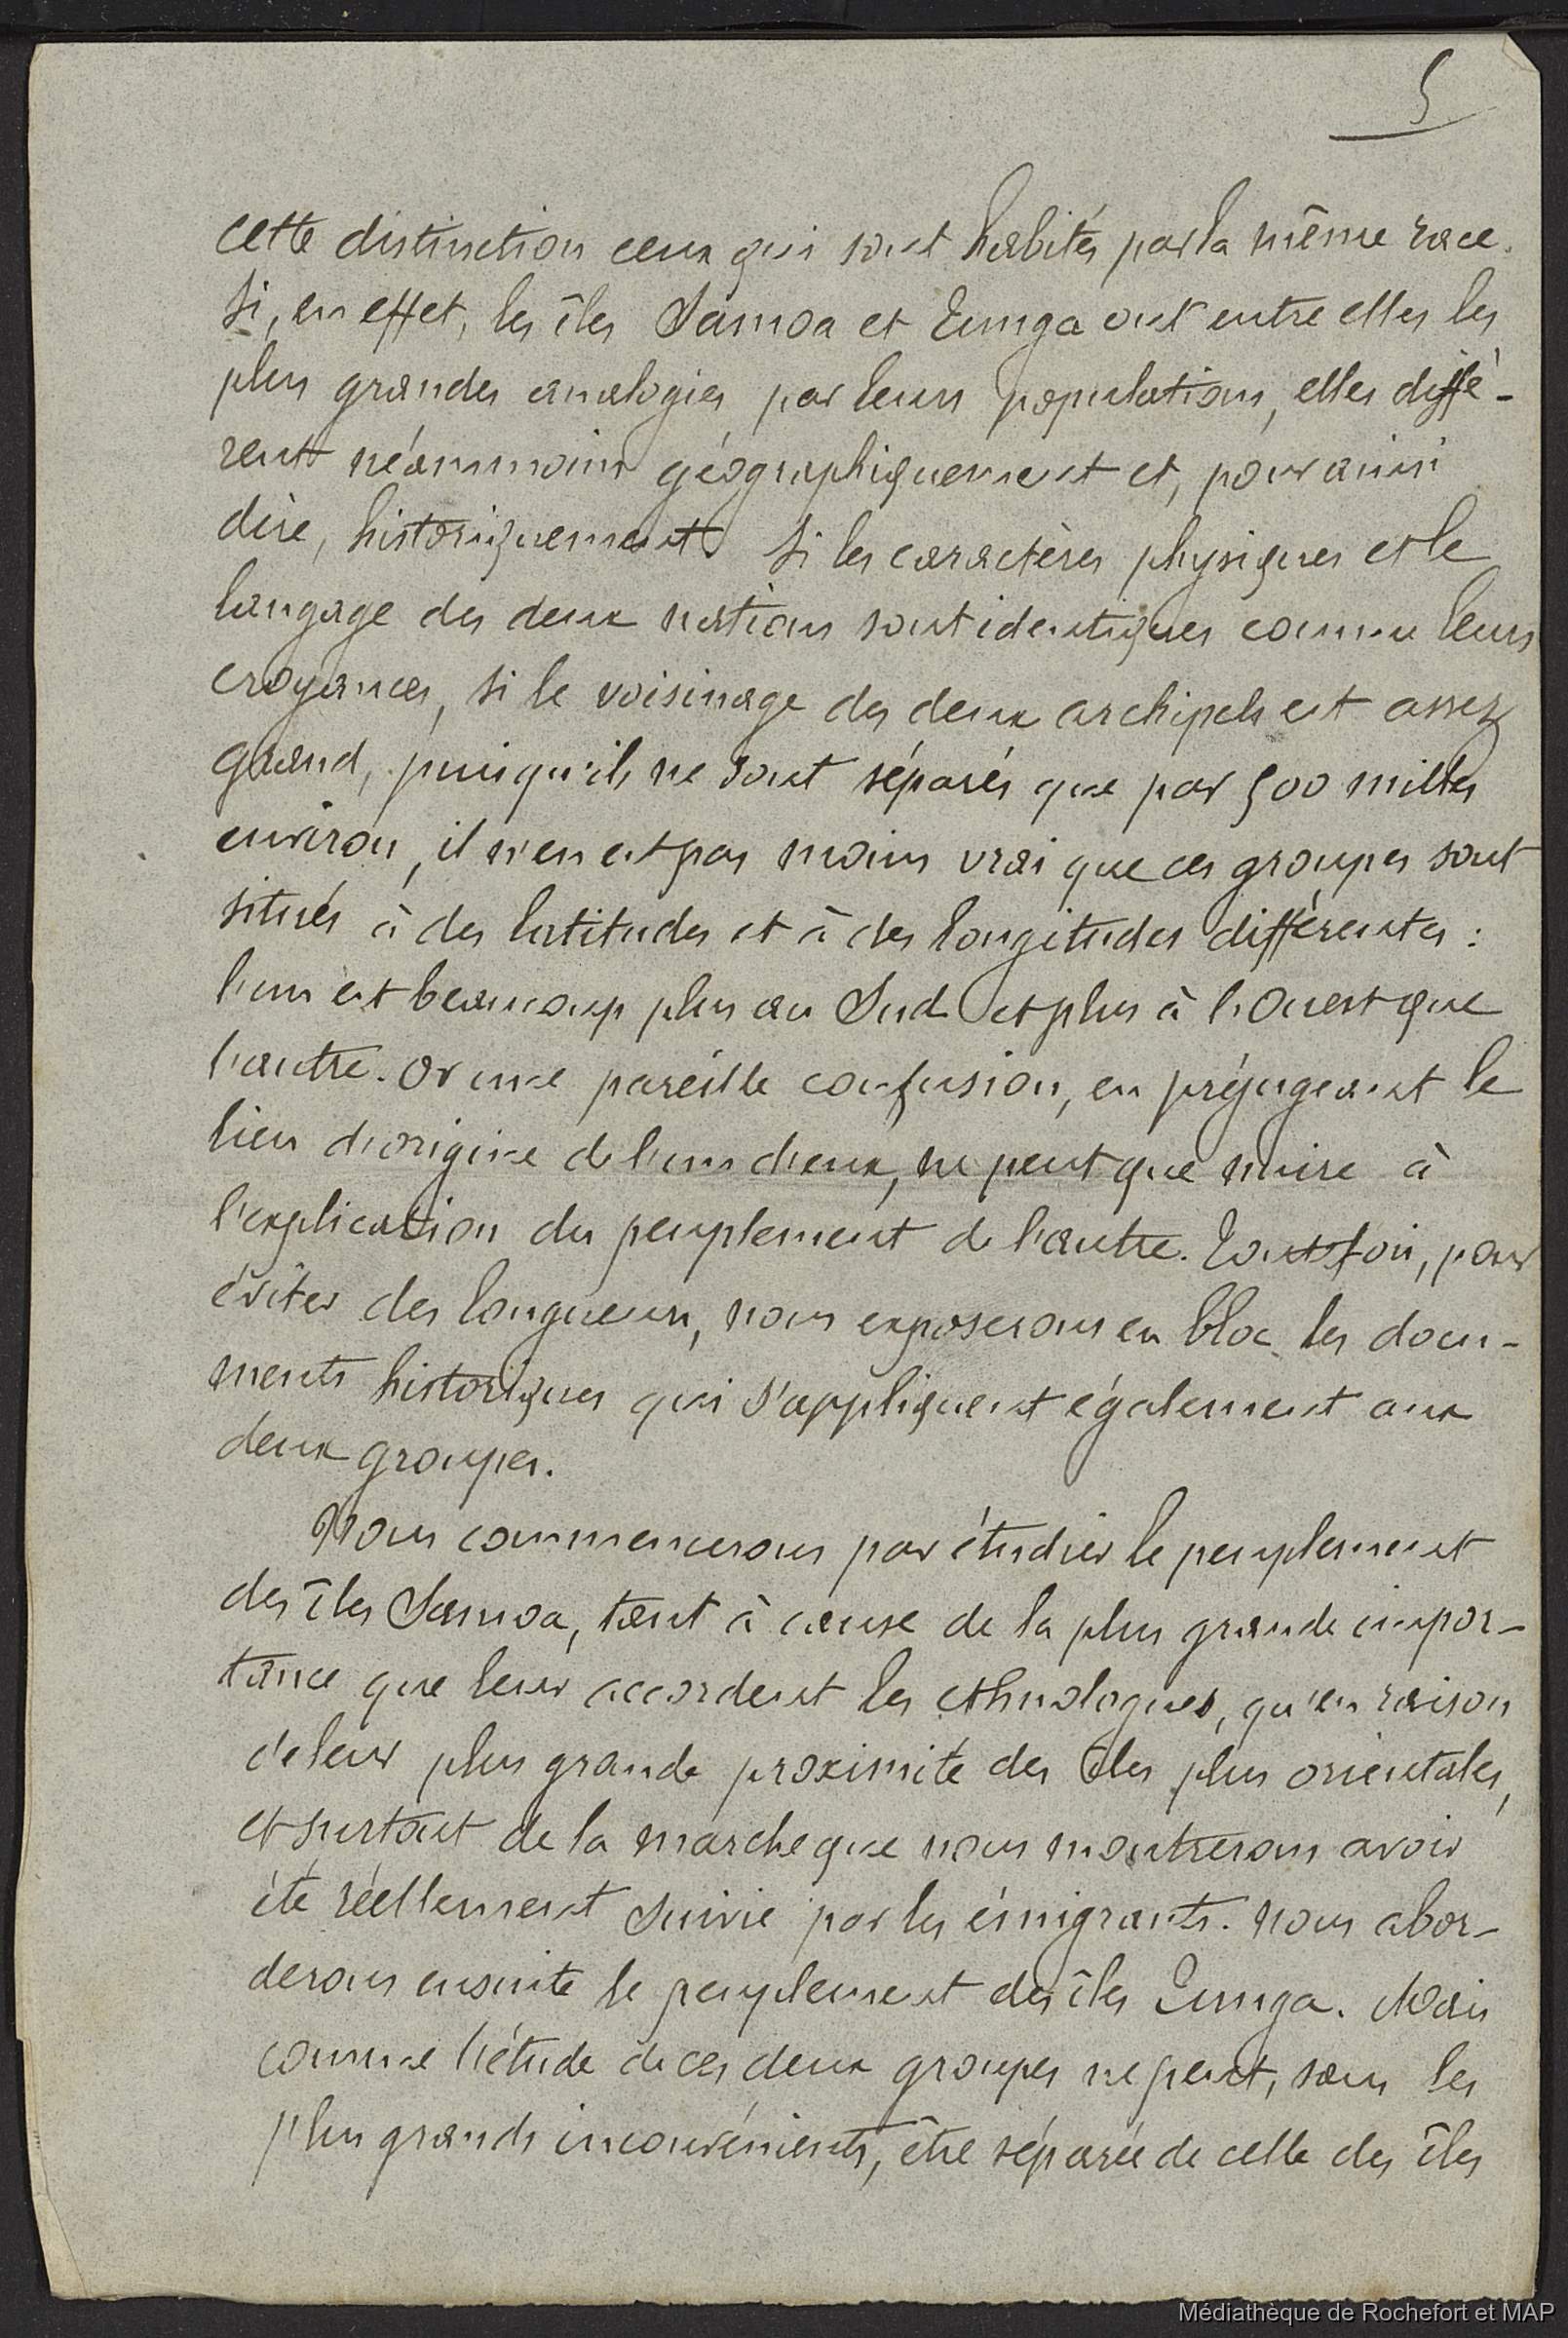 5
cette distinction ceux qui sont habités par la même race.
Si, en effet, les îles Samoa et Tunga ont entre elles les
plus grandes analogies, par leurs populations, elles diffé-
rent néanmoins géographiquement et, pour ainsi
dire, historiquement. Si les caractères physiques et le
langage des deux nations sont identiques comme leurs
croyances, si le voisinage des deux archipels est assez
grand, puisqu'ils ne sont séparés que par 500 milles
environ, il n'en est pas moins vrai que ces groupes sont
situés à des latitudes et à des longitudes différentes :
l'un est beaucoup plus au Sud et plus à l'Ouest que
l'autre. Or une pareille confusion, en préjugeant le
lieu d'origine de l'un d'eux, ne peut que nuire à
l'explication du peuplement de l'autre. Toutefois, pour
éviter des longueurs, nous exposerons en bloc les docu-
ments historiques qui s'appliquent également aux
deux groupes.
Nous commencerons par étudier le peuplement
des îles Samoa, tant à cause de la plus grande impor-
tance que leur accordent les ethnologues, qu'en raison
de leur plus grande proximité des îles plus orientales,
et surtout de la marche que nous montrerons avoir
été réellement suivie par les émigrants. Nous abor-
derons ensuite le peuplement des îles Tunga. Mais
comme l'étude de ces deux groupes ne peut, sans les
plus grands inconvénients, être séparée de celle des îles
Médiathèque de Rochefort et MAP